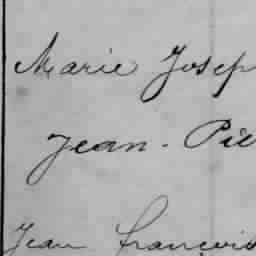 Marie Josep
Jean - Pie
Jean françois